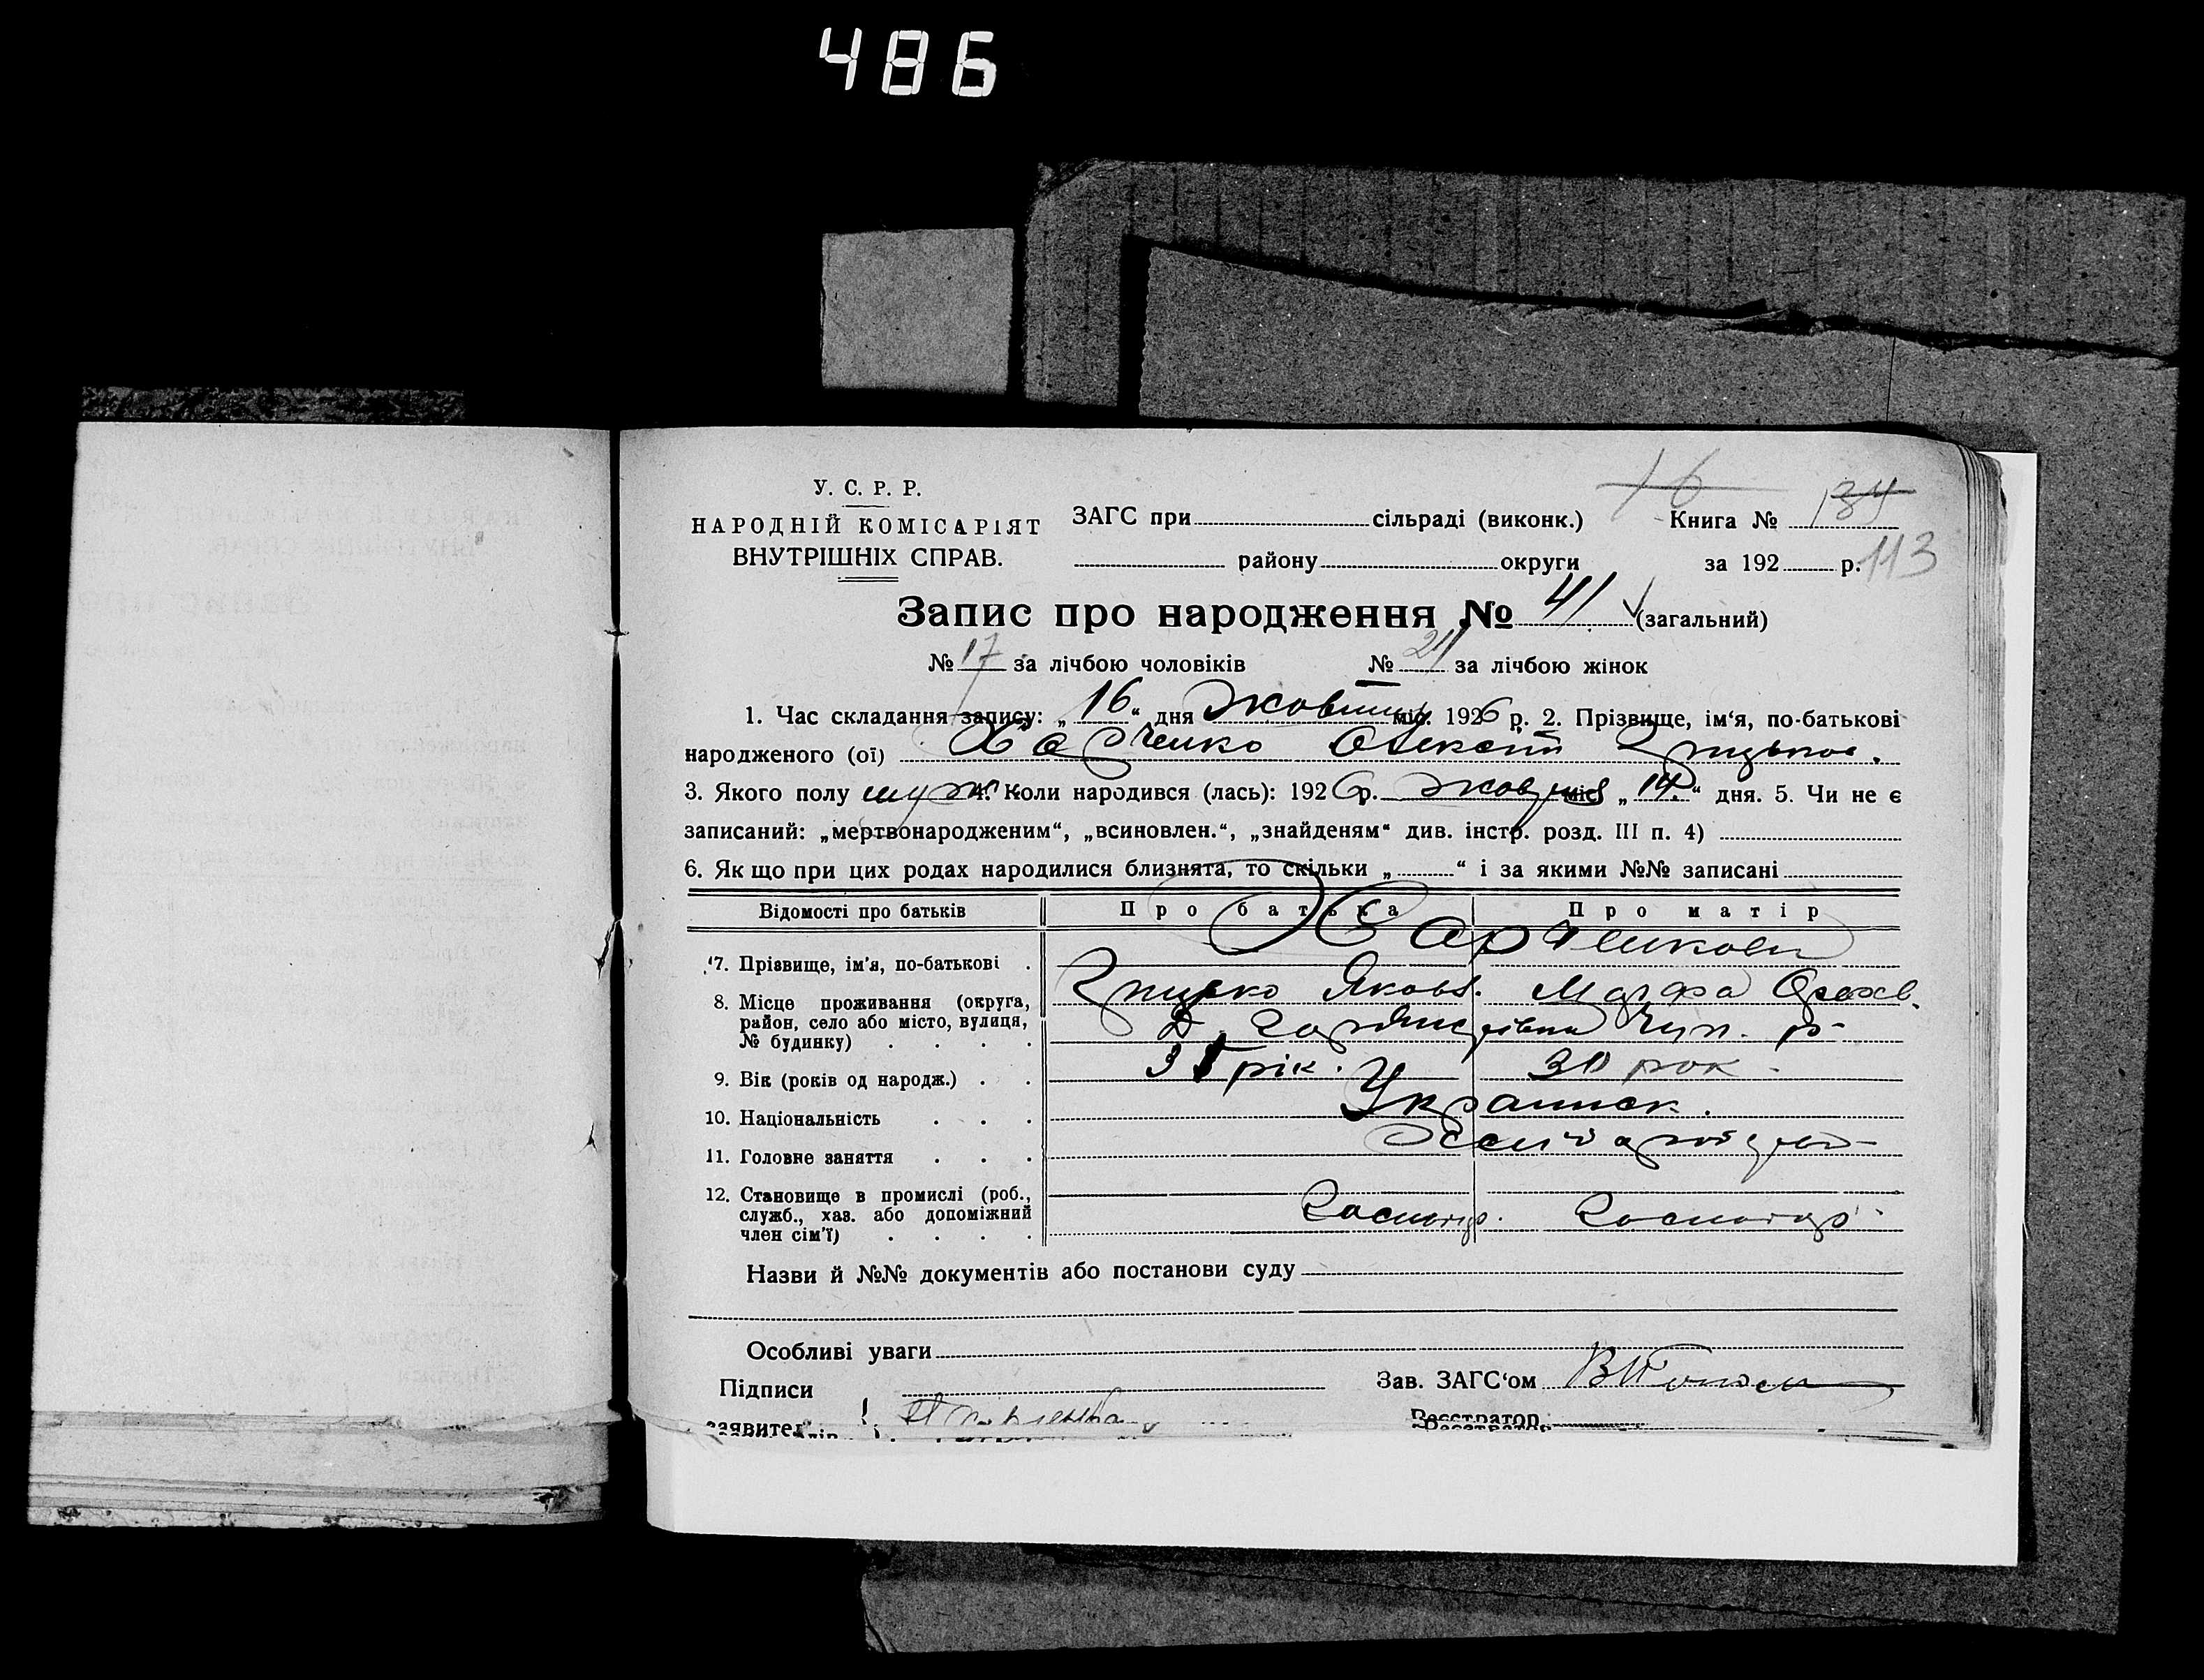 486
16
У. С. Р. Р.
НАРОДНІЙ КОМІСАРІЯТ
ВНУТРІШНІХ СПРАВ.
ЗАГС при сільраді (виконк.) Книга № 134
району округи за 192 р. 113
Запис про народження № 41 (загальний)
№ 17 за лічбою чоловіків № 24 за лічбою жінок
1. Час складання запису: „ 16 “ дня жовтня міс. 1926 р. 2. Прізвище, ім‘я, по-батькові
народженого (ої) Харченко Олексій Грицьков.
3. Якого полу муж. 4. Коли народився (лась): 1926 р. жовтня міс „ 14. “ дня. 5. Чи не є
записаний: „мертвонародженим“, „всиновлен.“, „знайденям“ див. інстр. розд. III п. 4)
6. Як що при цих родах народилися близнята, то скільки „ “ і за якими №№ записані
Відомості про батьків Про батька Про матір
7. Прізвище, ім'я, по-батькові . Харченкови
Грицько Яковл. Марфа
8. Місце проживання (округа,
район, село або місто, вулиця,
№ будинку) . . . . Чуп. р-
9. Вік (років од народж.) . . 31 рік. 30 рок.
10. Національність . . . Украинск.
11. Головне заняття . . .
12. Становище в промислі (роб.,
служб., хаз. або допоміжний
член сім'ї) . . . . Господр. Господр.
Назви й №№ документів або постанови суду
Особливі уваги
Підписи Зав. ЗАГС‘ом
заявител Реєстратор